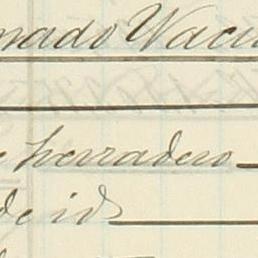 nado Vacu
e herradero
de id